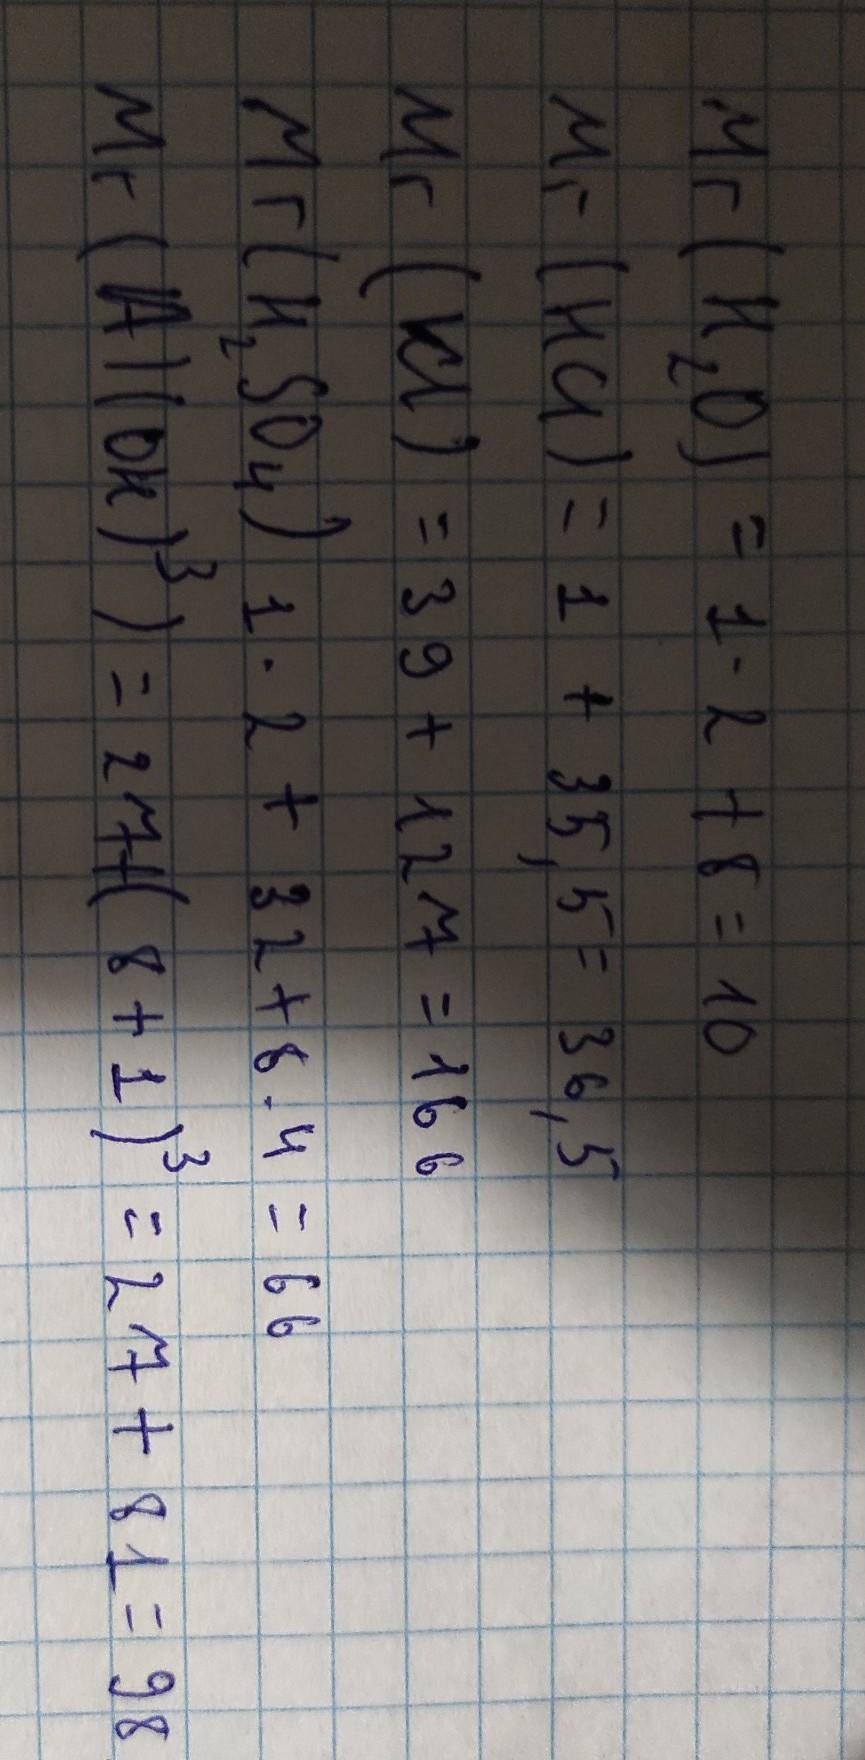 Mr (H₂O) = 1·2 + 8 = 10
Mr (HCl) = 1 + 35,5 = 36,5
Mr (KCl) = 39 + 127 = 166
Mr (H₂SO₄) 1·2 + 32 + 8·4 = 66
Mr (Al(OH)³) = 27+(8+1)³ = 27 + 81 = 98